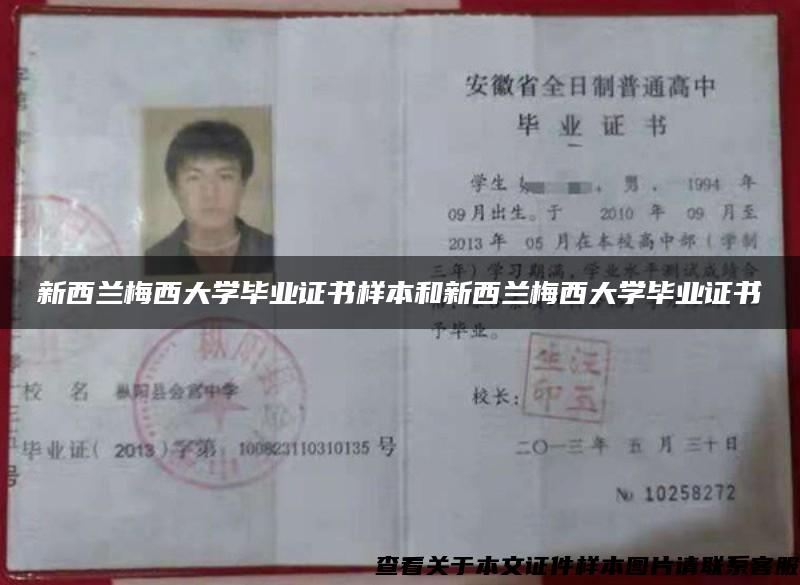 安徽省全日制普通高中
毕业证书
学生
，男，1994 年
09月出生。于 2010 年 09 月至
2013年 05 月在本校高中部（学制
三年）学习期满，学业水平测试成绩合
新西兰梅西大学毕业证书样本和新西兰梅西大学毕业证书
予毕业。
校 名 枞阳县会宫中学
校长：
毕业证( 2013 )字第 100823110310135 号
二〇一三年 五 月 三十日
№ 10258272
查看关于本文证件样本图片请联系客服